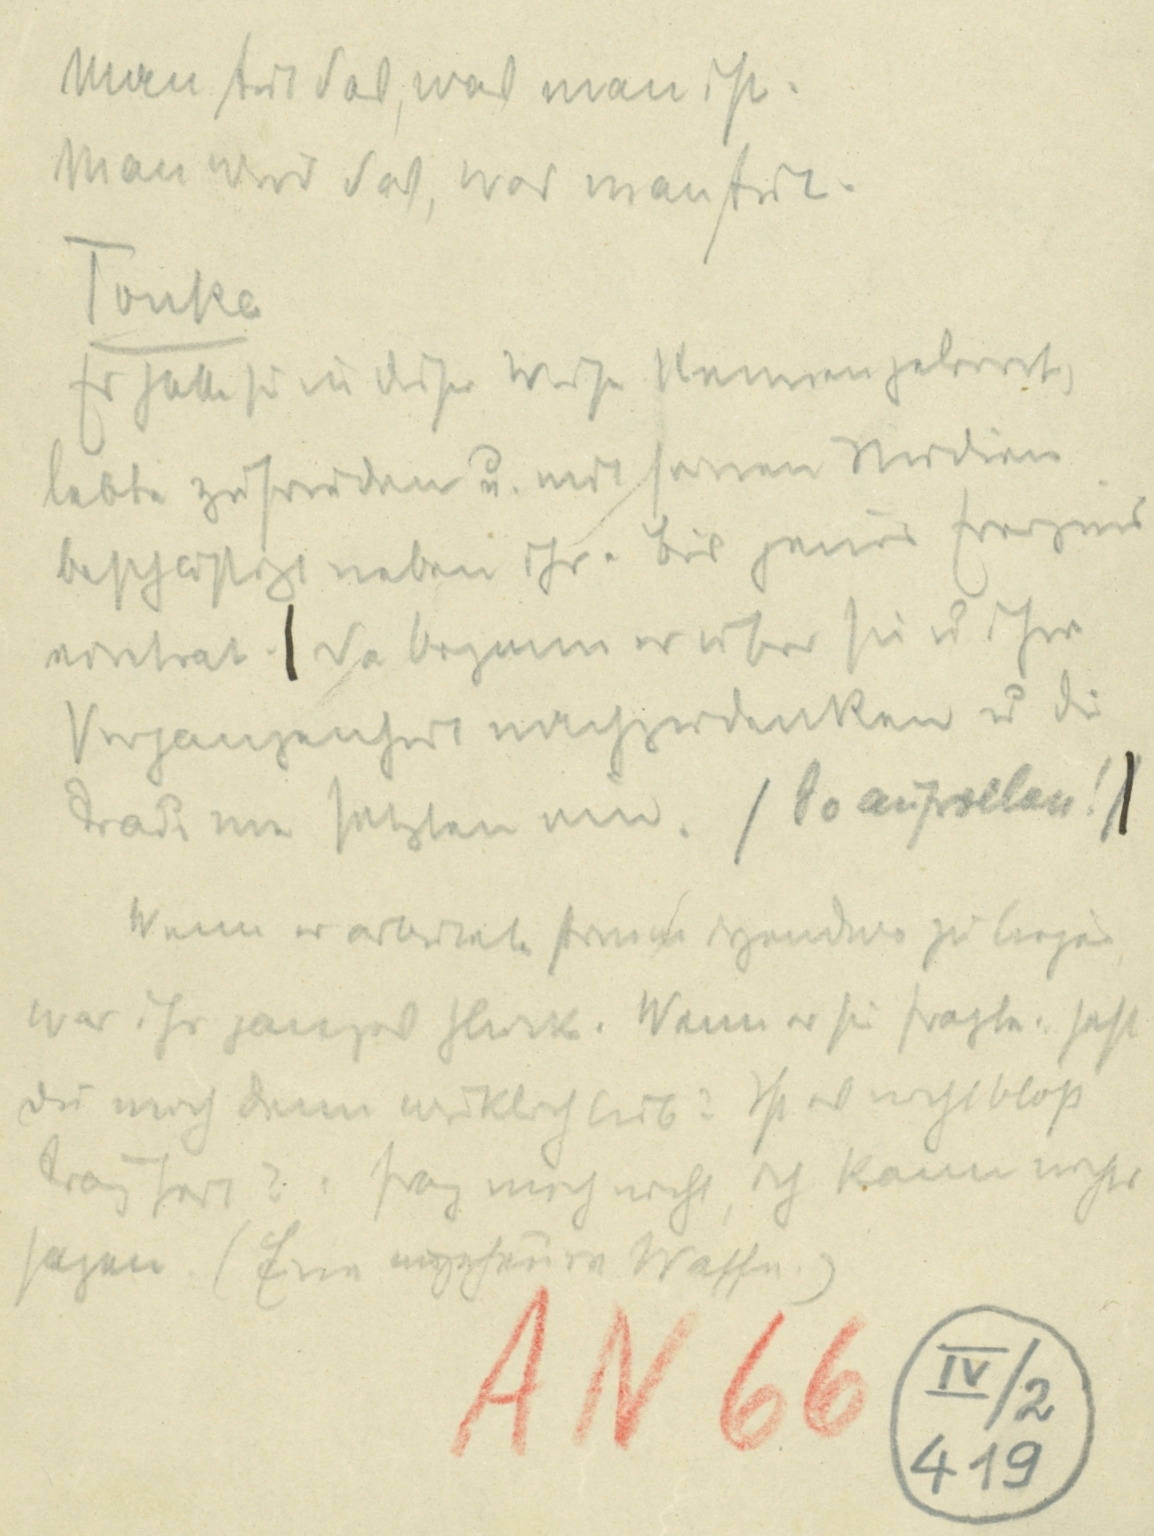 Man tut das, was man ist.
Man wird das, was man tut.
Tonka
Er hatte sie in dieser Weise kennengelernt,
lebte zufrieden u. mit seinen Studien
beschäftigt neben ihr. bis jenes Ereignis
eintrat. | Da begann er über sie u ihre
Vergangenheit nachzudenken u die
setzten ein. / So aufrollen! /|
Wenn er arbeitete stumm irgendwo zu liegen,
war ihr ganzes Glück. Wenn er sie fragte: hast
du mich denn wirklich lieb? Ist es nicht bloß
? : frag mich nicht, ich kann nichts
sagen. (Eine ungeheure Waffe.)
AN 66
IV/2
419